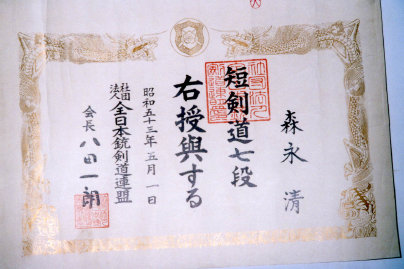 森永 清
短剣道七段
右授與する
昭和五十三年五月一日
社団法人 全日本銃剣道連盟
会長 八田一朗